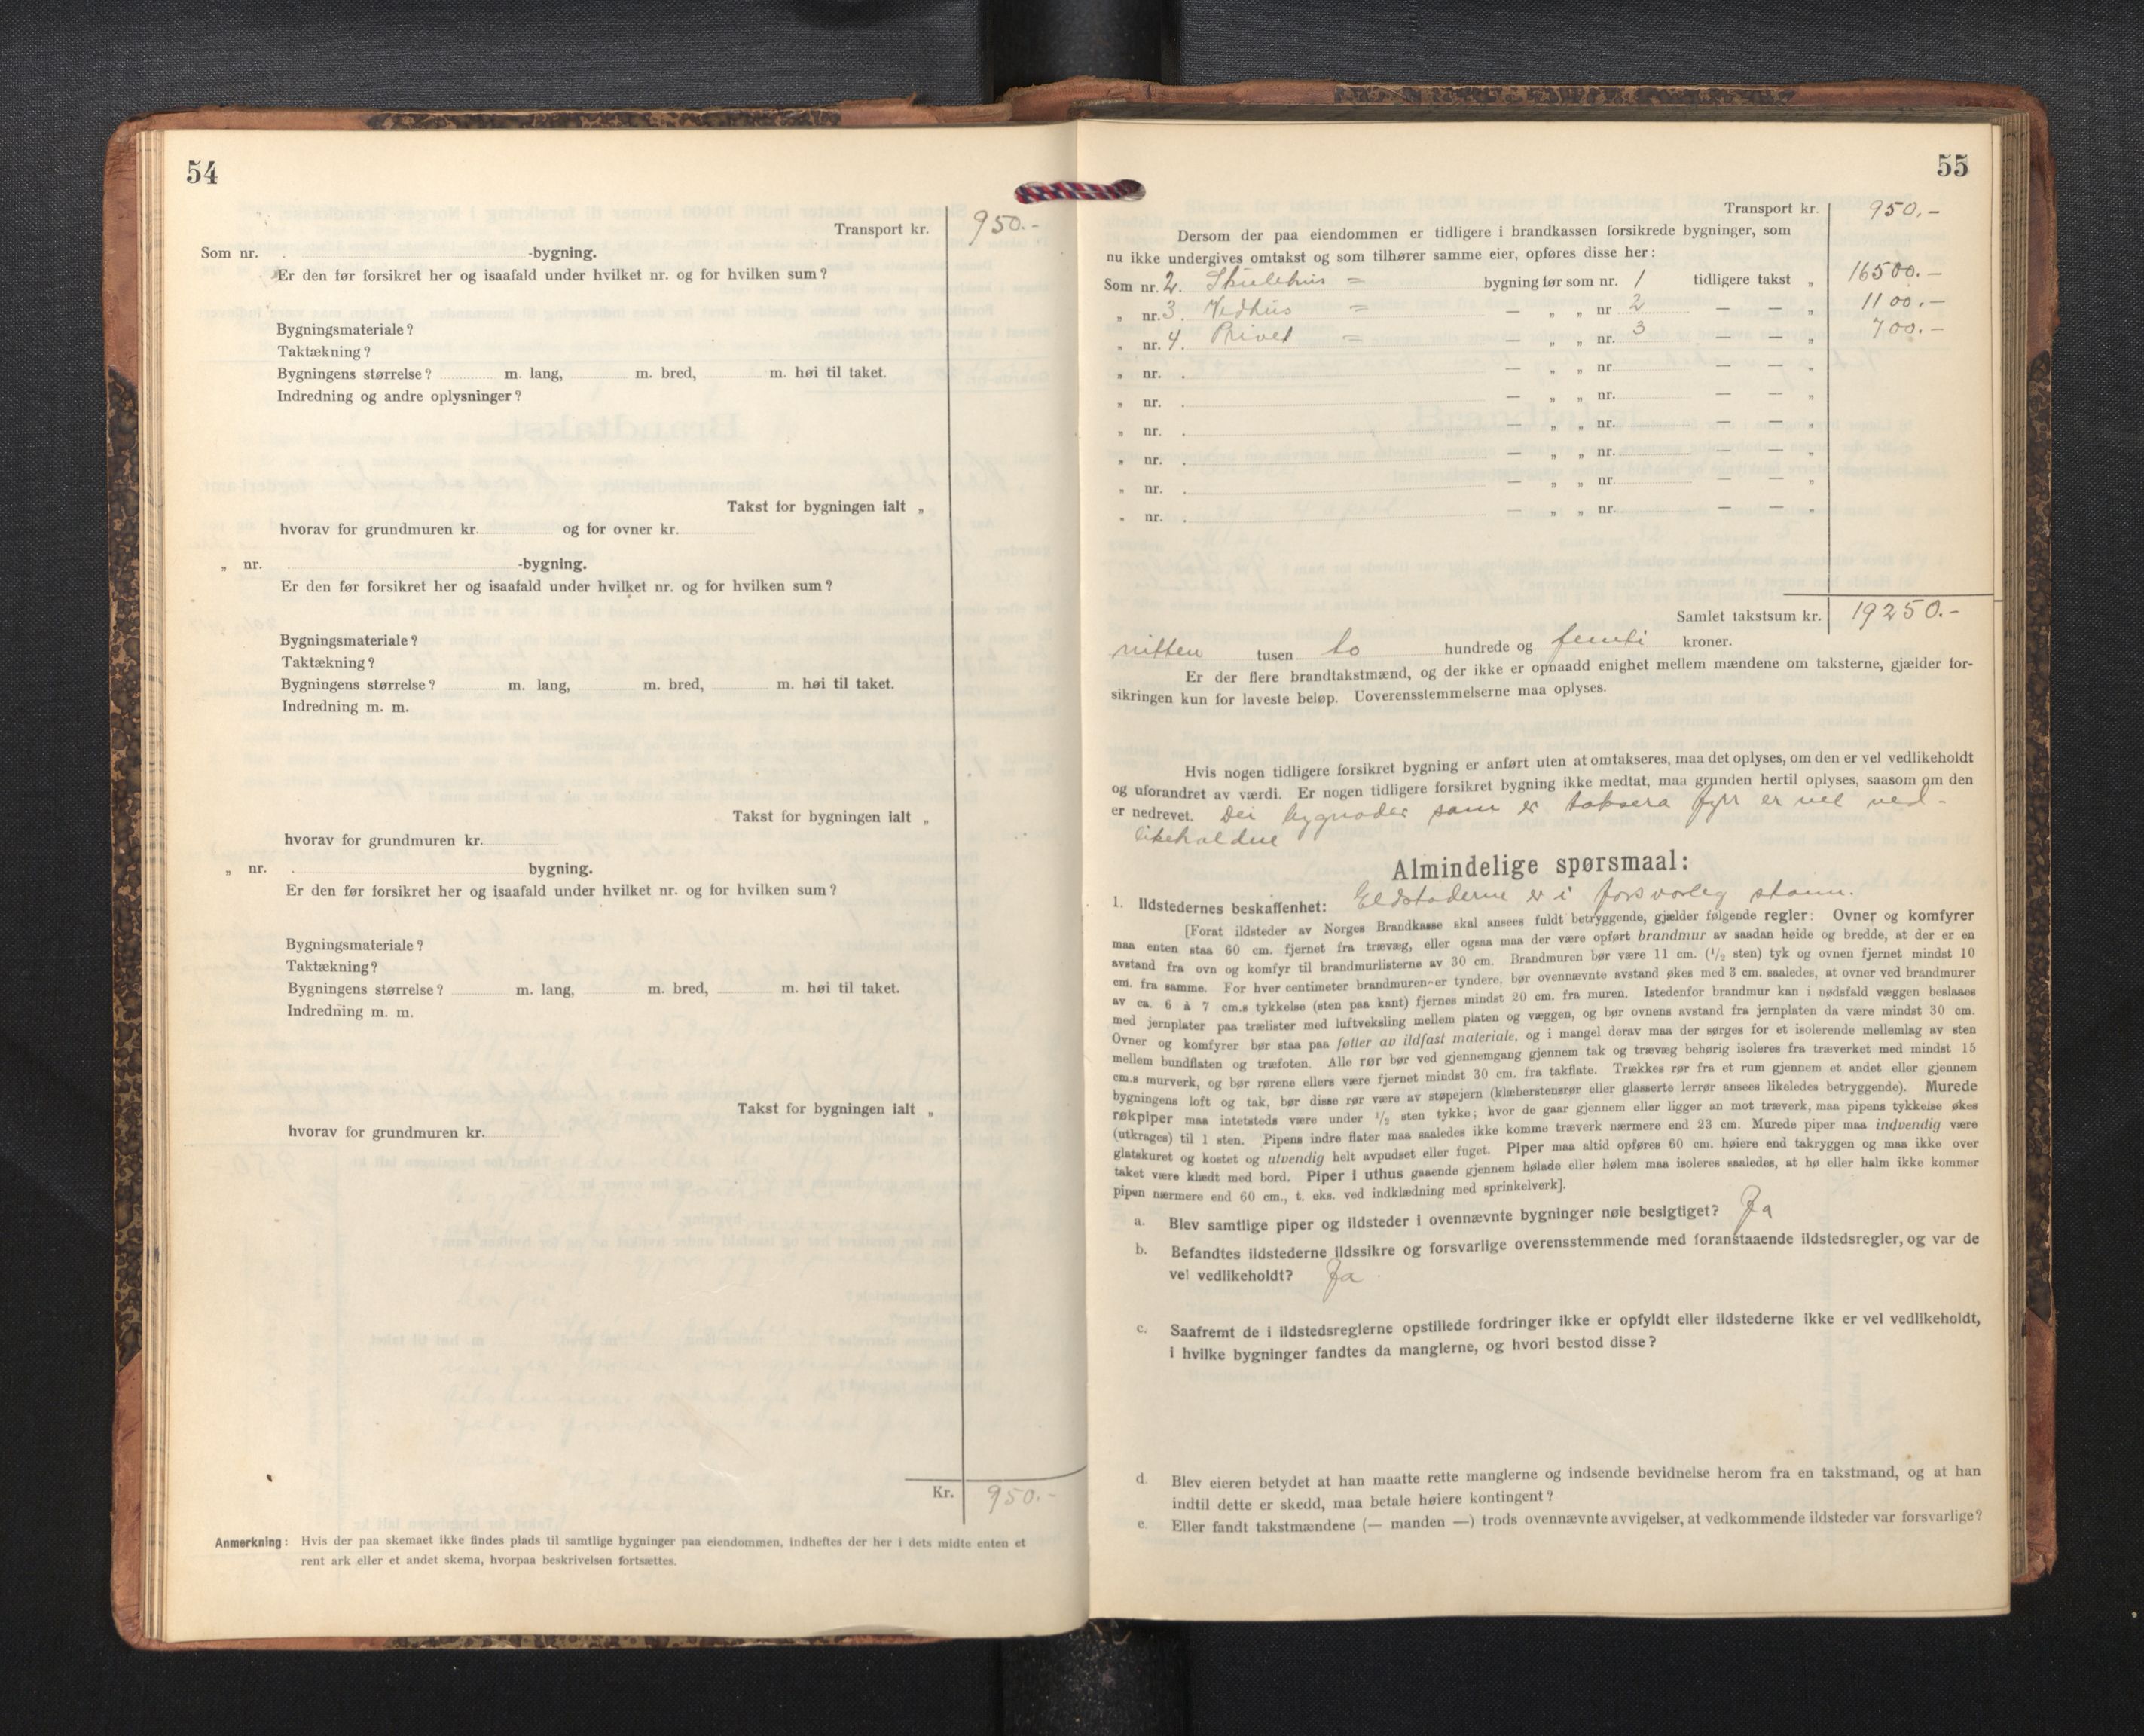 54
Transport kr. 950.-
Som nr. . -bygning.
Er den før forsikret her og isaafald under hvilket nr. og for hvilken sum?
Bygningsmateriale?
Taktækning?
Bygningens størrelse? m. lang, m. bred, m. høi til taket.
Indredning og andre oplysninger?
Takst for bygningen ialt „
hvorav for grundmuren kr. og for ovner kr.
„ nr. . -bygning.
Er den før forsikret her og isaafald under hvilket nr. og for hvilken sum?
Bygningsmateriale?
Taktækning?
Bygningens størrelse? m. lang, m. bred, m. høi til taket.
Indredning m. m.
Takst for bygningen ialt „
hvorav for grundmuren kr.
„ nr. . bygning.
Er den før forsikret her og isaafald under hvilket nr. og for hvilken sum?
Bygningsmateriale?
Taktækning?
Bygningens størrelse? m. lang, m. bred, m. høi til taket.
Indredning m. m.
Takst for bygningen ialt „
hvorav for grundmuren kr.
Kr. 950.-
Anmerkning: Hvis der paa skemaet ikke findes plads til samtlige bygninger paa eiendommen, indheftes der her i dets midte enten et
rent ark eller et andet skema, hvorpaa beskrivelsen fortsættes.
55
Transport kr. 950.-
Dersom der paa eiendommen er tidligere i brandkassen forsikrede bygninger, som
nu ikke undergives omtakst og som tilhører samme eier, opføres disse her:
Som nr. 2. Skulehus = bygning før som nr. 1 tidligere takst „ 16500.-
„ nr. 3. Vedhus = — „ „ nr 2 — — „ 1100.-
„ nr. 4. Privet = — „ „ nr. 3 — — „ 700.-
„ nr. . — „ „ nr. — — „
„ nr. . — „ „ nr. — — „
„ nr. . — „ „ nr. — — „
„ nr. . — „ „ nr. — — „
„ nr. . — „ „ nr. — — „
„ nr. . — „ „ nr. — — „
Samlet takstsum kr. 19250.-
nitten tusen to hundrede og femti kroner.
Er der flere brandtakstmænd, og der ikke er opnaadd enighet mellem mændene om taksterne, gjælder for-
sikringen kun for laveste beløp. Uoverensstemmelserne maa oplyses.
Hvis nogen tidligere forsikret bygning er anført uten at omtakseres, maa det oplyses, om den er vel vedlikeholdt
og uforandret av værdi. Er nogen tidligere forsikret bygning ikke medtat, maa grunden hertil oplyses, saasom om den
er nedrevet. Dei bygnader som er taksera fyrr er vel ved-
likehaldne
Almindelige spørsmaal:
1. Ildstedernes beskaffenhet: Eldstaderne er i forsvarleg stann.
[Forat ildsteder av Norges Brandkasse skal ansees fuldt betryggende, gjælder følgende regler: Ovner og komfyrer
maa enten staa 60 cm. fjernet fra trævæg, eller ogsaa maa der være opført brandmur av saadan høide og bredde, at der er en
avstand fra ovn og komfyr til brandmurlisterne av 30 cm. Brandmuren bør være 11 cm. (1/2 sten) tyk og ovnen fjernet mindst 10
cm. fra samme. For hver centimeter brandmuren er tyndere, bør ovennævnte avstand økes med 3 cm. saaledes, at ovner ved brandmurer
av ca. 6 à 7 cm.s tykkelse (sten paa kant) fjernes mindst 20 cm. fra muren. Istedenfor brandmur kan i nødsfald væggen beslaaes
med jernplater paa trælister med luftveksling mellem platen og væggen, og bør ovnens avstand fra jernplaten da være mindst 30 cm.
Ovner og komfyrer bør staa paa føtter av ildfast materiale, og i mangel derav maa der sørges for et isolerende mellemlag av sten
mellem bundflaten og træfoten. Alle rør bør ved gjennemgang gjennem tak og trævæg behørig isoleres fra træverket med mindst 15
cm.s murverk, og bør rørene ellers være fjernet mindst 30 cm. fra takflate. Trækkes rør fra et rum gjennem et andet eller gjennem
bygningens loft og tak, bør disse rør være av støpejern (klæberstensrør eller glasserte lerrør ansees likeledes betryggende). Murede
røkpiper maa intetsteds være under 1/2 sten tykke; hvor de gaar gjennem eller ligger an mot træverk, maa pipens tykkelse økes
(utkrages) til 1 sten. Pipens indre flater maa saaledes ikke komme træverk nærmere end 23 cm. Murede piper maa indvendig være
glatskuret og kostet og utvendig helt avpudset eller fuget. Piper maa altid opføres 60 cm. høiere end takryggen og maa ikke over
taket være klædt med bord. Piper i uthus gaaende gjennem hølade eller hølem maa isoleres saaledes, at hø eller halm ikke kommer
pipen nærmere end 60 cm., t. eks. ved indklædning med sprinkelverk].
a. Blev samtlige piper og ildsteder i ovennævnte bygninger nøie besigtiget? Ja
b. Befandtes ildstederne ildssikre og forsvarlige overensstemmende med foranstaaende ildstedsregler, og var de
vel vedlikeholdt? Ja
c. Saafremt de i ildstedsreglerne opstillede fordringer ikke er opfyldt eller ildstederne ikke er vel vedlikeholdt,
i hvilke bygninger fandtes da manglerne, og hvori bestod disse?
d. Blev eieren betydet at han maatte rette manglerne og indsende bevidnelse herom fra en takstmand, og at han
indtil dette er skedd, maa betale høiere kontingent?
e. Eller fandt takstmændene (— manden —) trods ovennævnte avvigelser, at vedkommende ildsteder var forsvarlige?